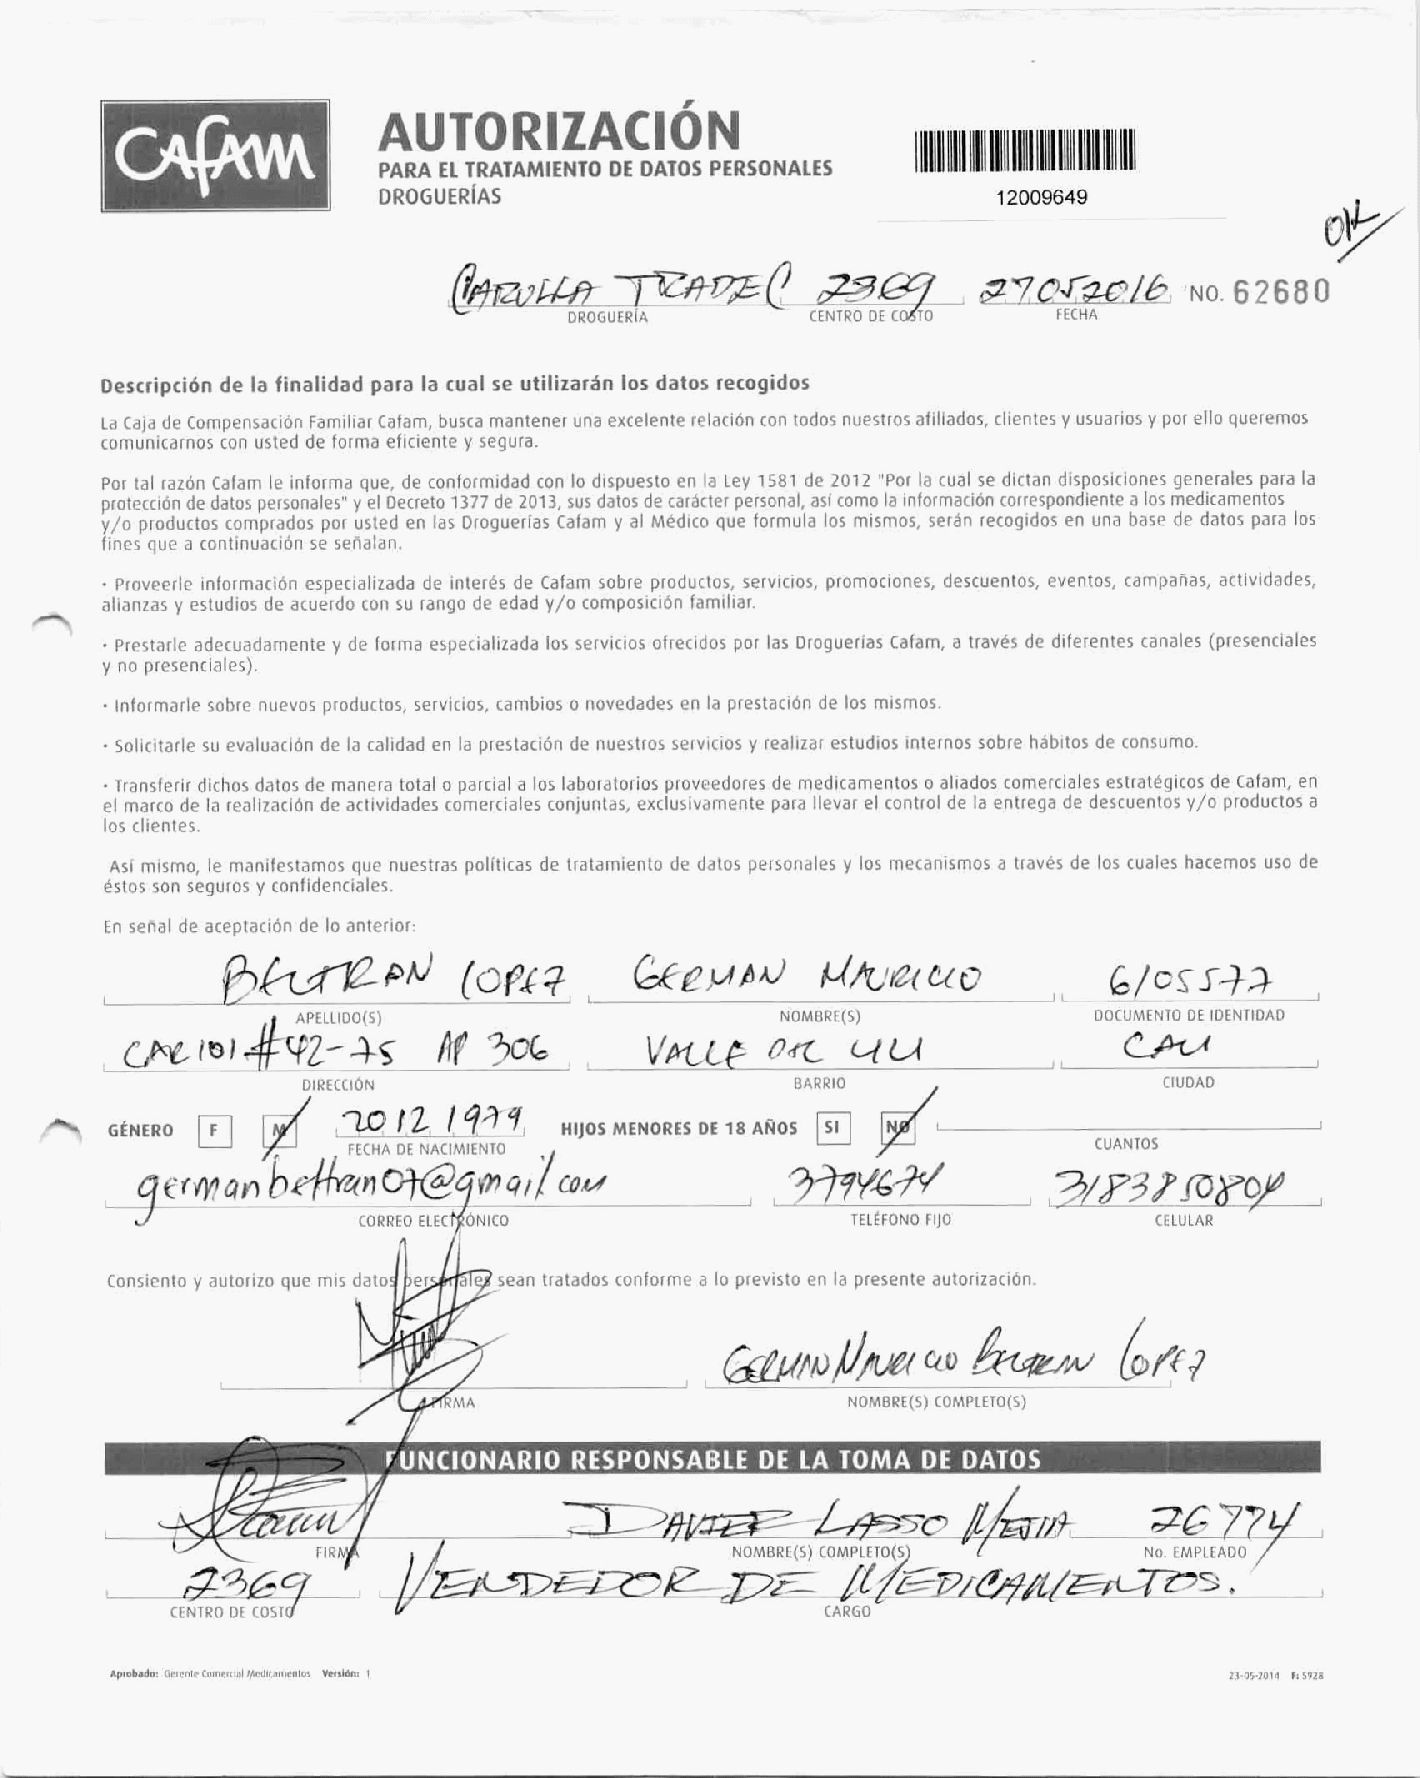 CAFAM
AUTORIZACIÓN
PARA EL TRATAMIENTO DE DATOS PERSONALES
DROGUERÍAS
12009649
OK
CARULLA TRADEC 2369 27052016 NO. 62680
DROGUERÍA CENTRO DE COSTO FECHA
Descripción de la finalidad para la cual se utilizarán los datos recogidos
La Caja de Compensación Familiar Cafam, busca mantener una excelente relación con todos nuestros afiliados, clientes y usuarios y por ello queremos
comunicarnos con usted de forma eficiente y segura.
Por tal razón Cafam le informa que, de conformidad con lo dispuesto en la Ley 1581 de 2012 "Por la cual se dictan disposiciones generales para la
protección de datos personales" y el Decreto 1377 de 2013, sus datos de carácter personal, así como la información correspondiente a los medicamentos
y/o productos comprados por usted en las Droguerías Cafam y al Médico que formula los mismos, serán recogidos en una base de datos para los
fines que a continuación se señalan.
· Proveerle información especializada de interés de Cafam sobre productos, servicios, promociones, descuentos, eventos, campañas, actividades,
alianzas y estudios de acuerdo con su rango de edad y/o composición familiar.
· Prestarle adecuadamente y de forma especializada los servicios ofrecidos por las Droguerías Cafam, a través de diferentes canales (presenciales
y no presenciales).
· Informarle sobre nuevos productos, servicios, cambios o novedades en la prestación de los mismos.
· Solicitarle su evaluación de la calidad en la prestación de nuestros servicios y realizar estudios internos sobre hábitos de consumo.
· Transferir dichos datos de manera total o parcial a los laboratorios proveedores de medicamentos o aliados comerciales estratégicos de Cafam, en
el marco de la realización de actividades comerciales conjuntas, exclusivamente para llevar el control de la entrega de descuentos y/o productos a
los clientes.
Así mismo, le manifestamos que nuestras políticas de tratamiento de datos personales y los mecanismos a través de los cuales hacemos uso de
éstos son seguros y confidenciales.
En señal de aceptación de lo anterior:
BELTRAN LOPEZ GERMAN MAURICIO 6105577
APELLIDO(S) NOMBRE(S) DOCUMENTO DE IDENTIDAD
CAR 101 #42-75 AP 306 VALLE DEL LILI CALI
DIRECCIÓN BARRIO CIUDAD
GÉNERO F M 20 12 1979 HIJOS MENORES DE 18 AÑOS SI NO
FECHA DE NACIMIENTO CUANTOS
germanbeltran07@gmail.com 3794674 3183850804
CORREO ELECTRÓNICO TELÉFONO FIJO CELULAR
Consiento y autorizo que mis datos personales sean tratados conforme a lo previsto en la presente autorización.
GERMAN MAURICIO BELTRAN LOPEZ
FIRMA NOMBRE(S) COMPLETO(S)
FUNCIONARIO RESPONSABLE DE LA TOMA DE DATOS
LASSO MEJIA 26774
FIRMA NOMBRE(S) COMPLETO(S) No. EMPLEADO
2369 VENDEDOR DE MEDICAMENTOS.
CENTRO DE COSTO CARGO
Aprobado: Gerente Comercial Medicamentos Versión: 1 23-05-2014 F: 5928